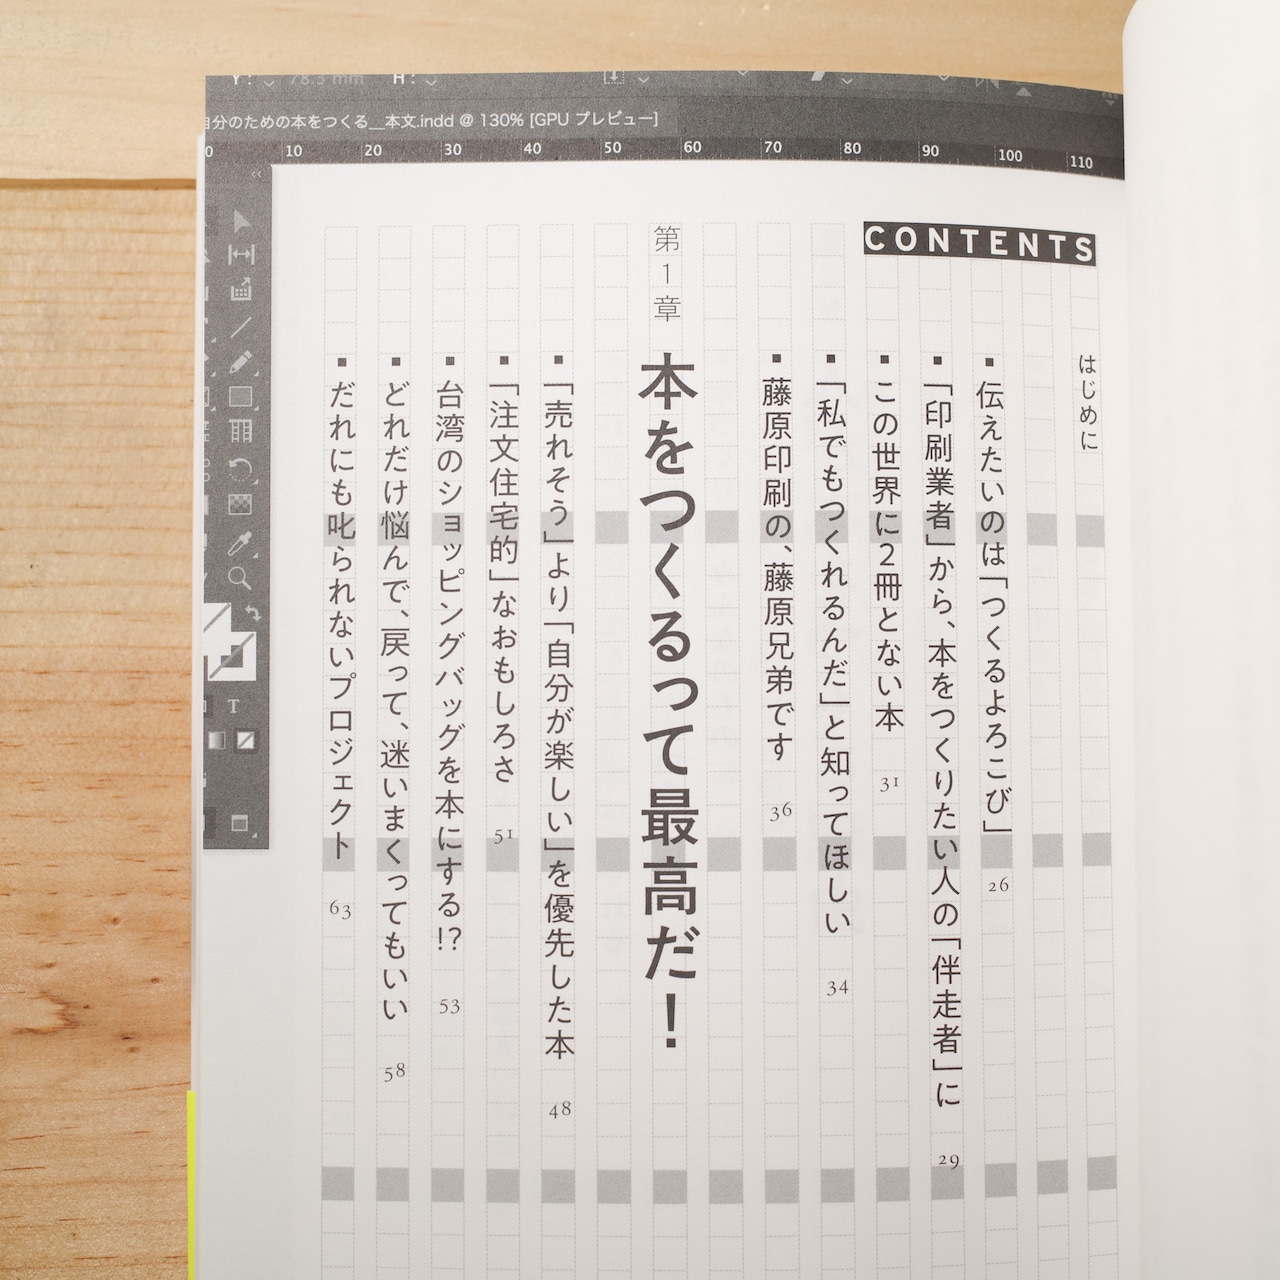 Y: 78.3 mm H:
自分のための本をつくる__本文.indd @ 130% [GPU プレビュー]
0 10 20 30 40 50 60 70 80 90 100 110
CONTENTS
はじめに
▪ 伝えたいのは「つくるよろこび」 26
▪ 「印刷業者」から、本をつくりたい人の「伴走者」に 29
▪ この世界に2冊とない本 31
▪ 「私でもつくれるんだ」と知ってほしい 34
▪ 藤原印刷の、藤原兄弟です 36
第1章 本をつくるって最高だ!
▪ 「売れそう」より「自分が楽しい」を優先した本 48
▪ 「注文住宅的」なおもしろさ 51
▪ 台湾のショッピングバッグを本にする!? 53
▪ どれだけ悩んで、戻って、迷いまくってもいい 58
▪ だれにも叱られないプロジェクト 63
T